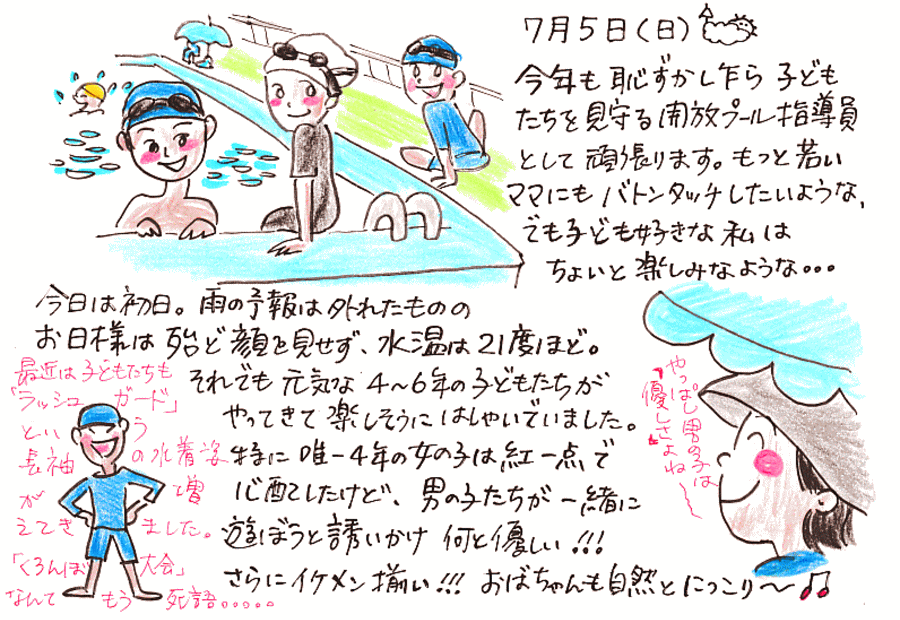 7月5日(日)
今年も恥ずかし乍ら子ども
たちを見守る開放プール指導員
として頑張ります。もっと若い
ママにもバトンタッチしたいような、
でも子ども好きな私は
ちょいと楽しみなような…
今日は初日。雨の予報は外れたものの
お日様は殆ど顔を見せず、水温は21度ほど。
それでも元気な4〜6年の子どもたちが
やってきて楽しそうにはしゃいでいました。
特に唯一4年の女の子は紅一点で
心配したけど、男の子たちが一緒に
遊ぼうと誘いかけ 何と優しい!!!
さらにイケメン揃い!!! おばちゃんも自然とにっこり〜♫
最近は子どもたちも
「ラッシュガード」
という
長袖の水着姿
が増
えてきました。
「くろんぼ大会」
なんてもう死語……
やっぱし男の子は
「優しさよね」〜